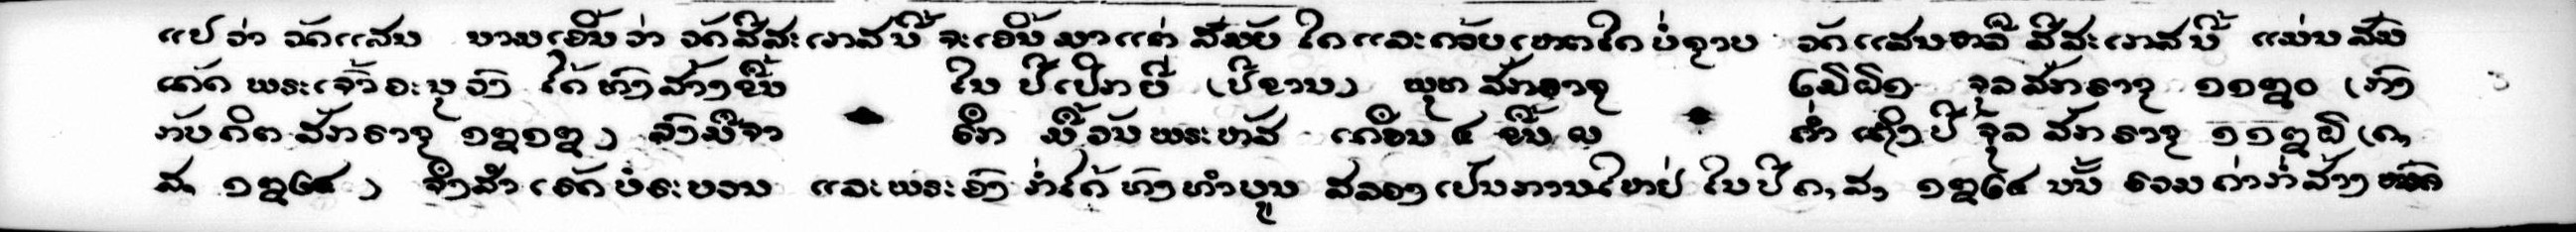 ແປວ່າ ວັດແສນ ນາມເອີ້ນວ່າ ວັດສີສະເກສນີ້ ຈະເອີ້ນມາແຕ່ ສມັຍ ໃດແລະດ້ວຍເຫດໃດ ບໍ່ຊາບ ວັດແສນຫລື ສີສະເກສນີ້ ແມ່ນສົມ
ເດັດ ພຣະເຈົ້າອະນຸວົງ ໄດ້ຊົງສ້າງຂຶ້ນ ໃນ ປີເປິກຍີ່ (ປີຂານ) ພຸທສັກຣາຊ ໒໓໖໑ ຈຸລສັກຣາຊ ໑໑໘໐ (ກົງ
ກັບຄິດສັກຣາຊ ໑໘໑໘) ລົງມືຈາ ຣຶກ ມື້ວັນພຣະຫັສ ເດືອນ ໔ ຂຶ້ນ ຄ່ຳ ເຖິງປີ ຈຸລສັກຣາຊ ໑໑໘໖ (ຄ,
ສ, ໑໘໒໔) ຈຶ່ງສຳເຣັດບໍຣະບວນ ແລະພຣະອົງ ກໍ່ໄດ້ຊົງທຳບຸນ ສລອງເປັນການໃຫຍ່ ໃນປີຄ,ສ, ໑໘໒໔ ນັ້ນ ຣວມຄ່າກໍ່ສ້າງ ໝົດ